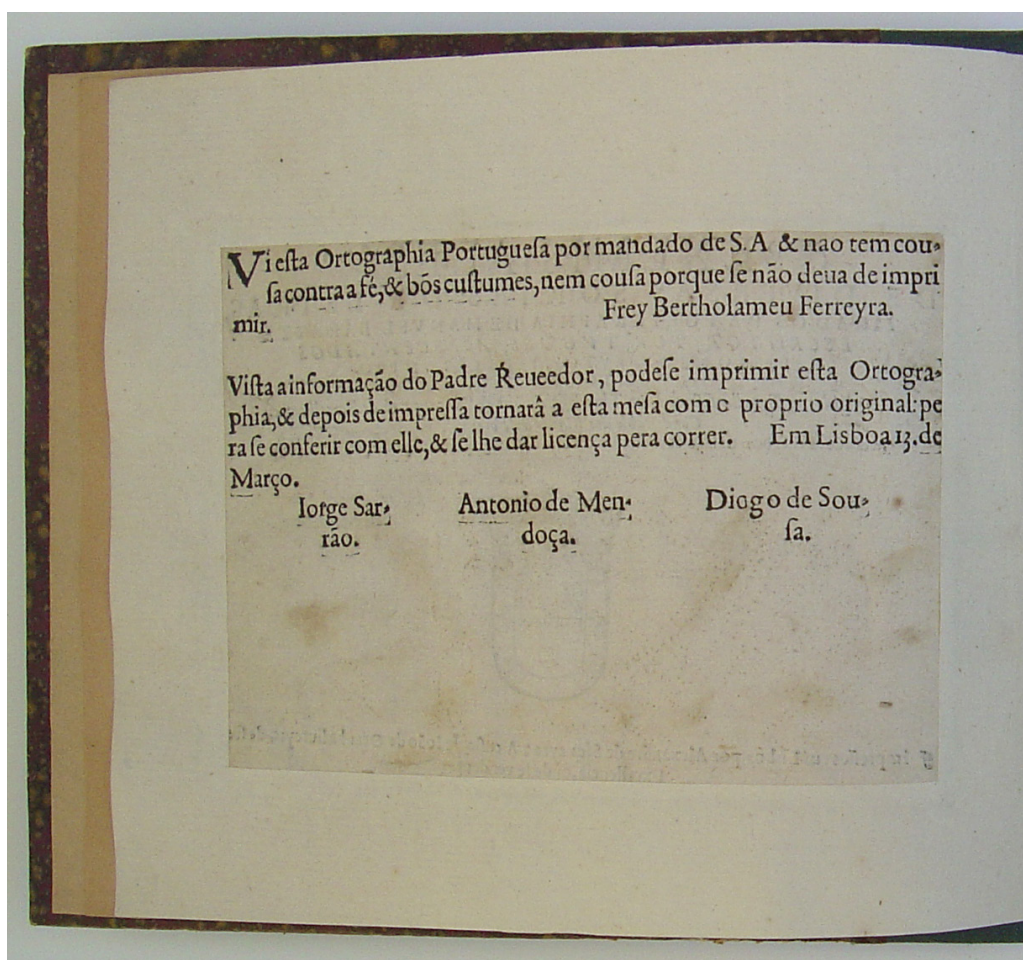 Vi eſta Ortographia Portugueſa por mandado de S. A & nao tem cou-
ſa contra a fé, & bõs cuſtumes, nem couſa porque ſe não deua de impri
mir. Frey Bertholameu Ferreyra.
Viſta a informação do Padre Reueedor, podeſe imprimir eſta Ortogra-
phia, & depois de impreſſa tornarâ a eſta meſa com o proprio original: pe
ra ſe conferir com elle, & ſe lhe dar licença pera correr. Em Lisboa 13. de
Março.
Iorge Sar- Antonio de Men- Diogo de Sou-
rão. doça. ſa.